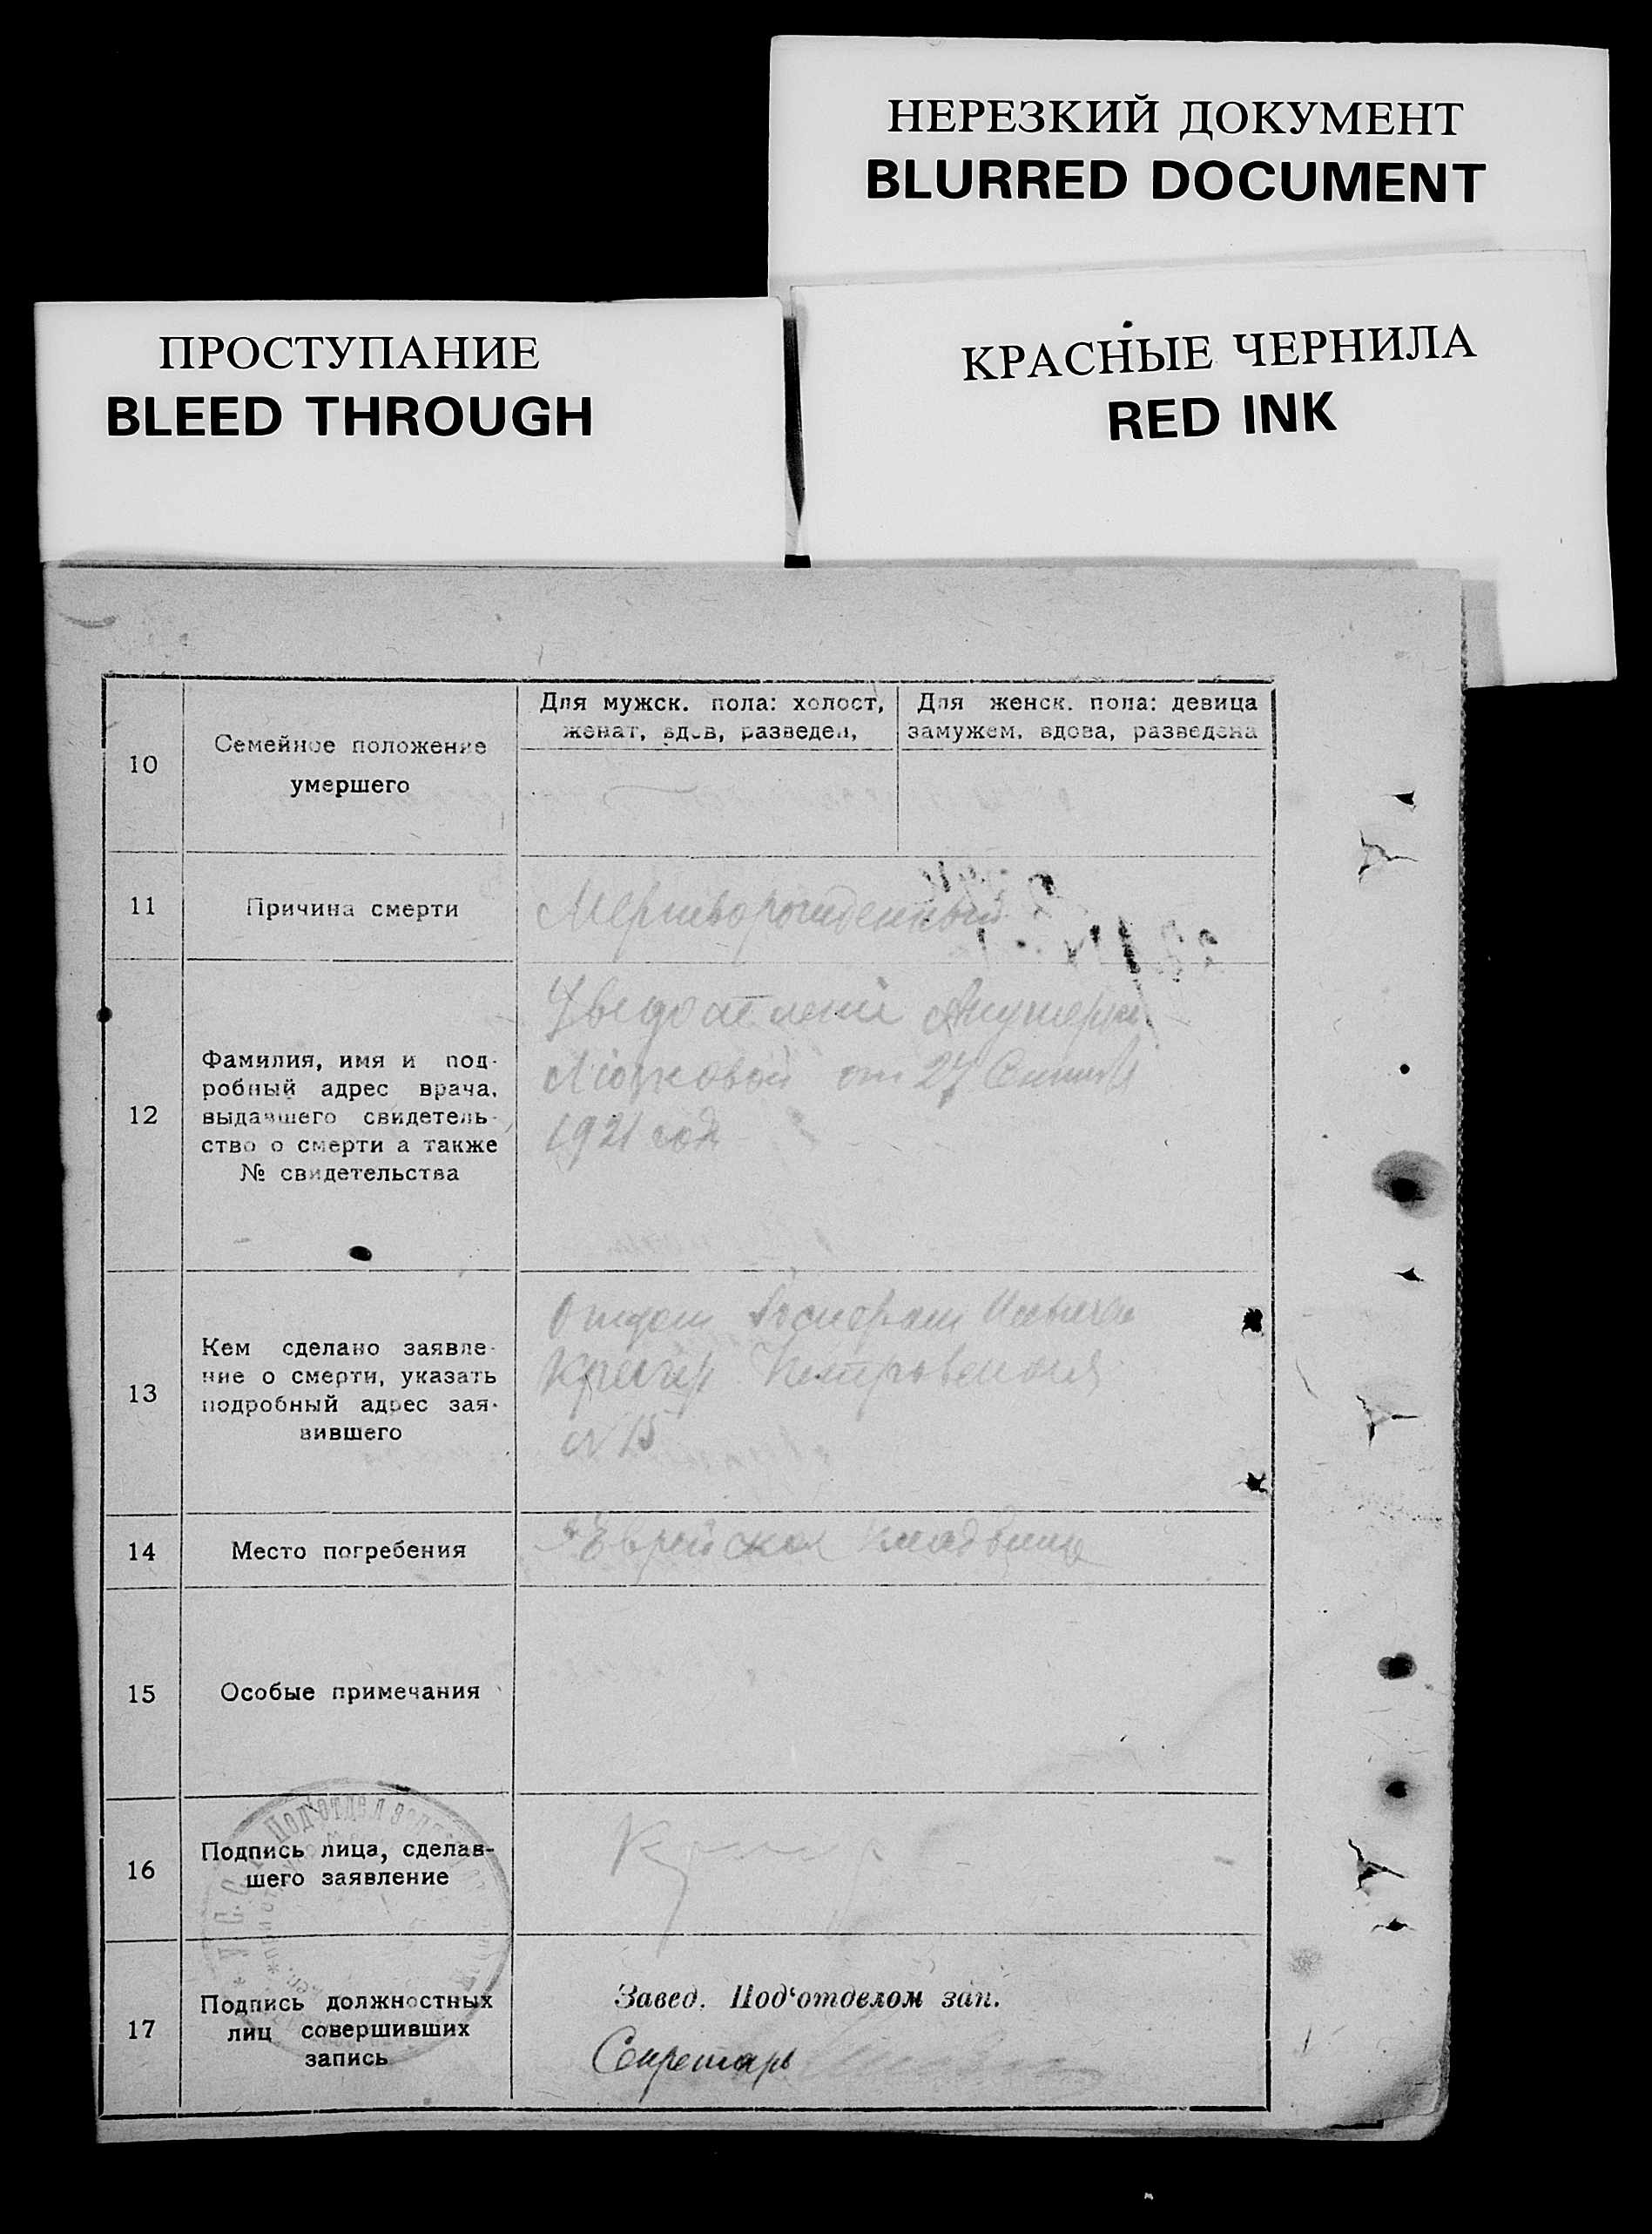 НЕРЕЗКИЙ ДОКУМЕНТ
BLURRED DOCUMENT
ПРОСТУПАНИЕ
BLEED THROUGH
КРАСНЫЕ ЧЕРНИЛА
RED INK
10
Семейное положение
умершего
Для мужск. пола: холост,
женат, вдов, разведен,
Для женск. пола: девица
замужем, вдова, разведена
11
Причина смерти
Мертворожденный
12
Фамилия, имя и под-
робный адрес врача,
выдавшего свидетель-
ство о смерти а также
№ свидетельства
Акушерки
от 27
1921 год
13
Кем сделано заявле-
ние о смерти, указать
подробный адрес зая-
вившего
Отцом
Петровской
N 15
14
Место погребения
Еврейское кладбище
15
Особые примечания
16
Подпись лица, сделав-
шего заявление
Под'отдел
17
Подпись должностных
лиц совершивших
запись
Завед. Под'отделом зап.
Секретарь